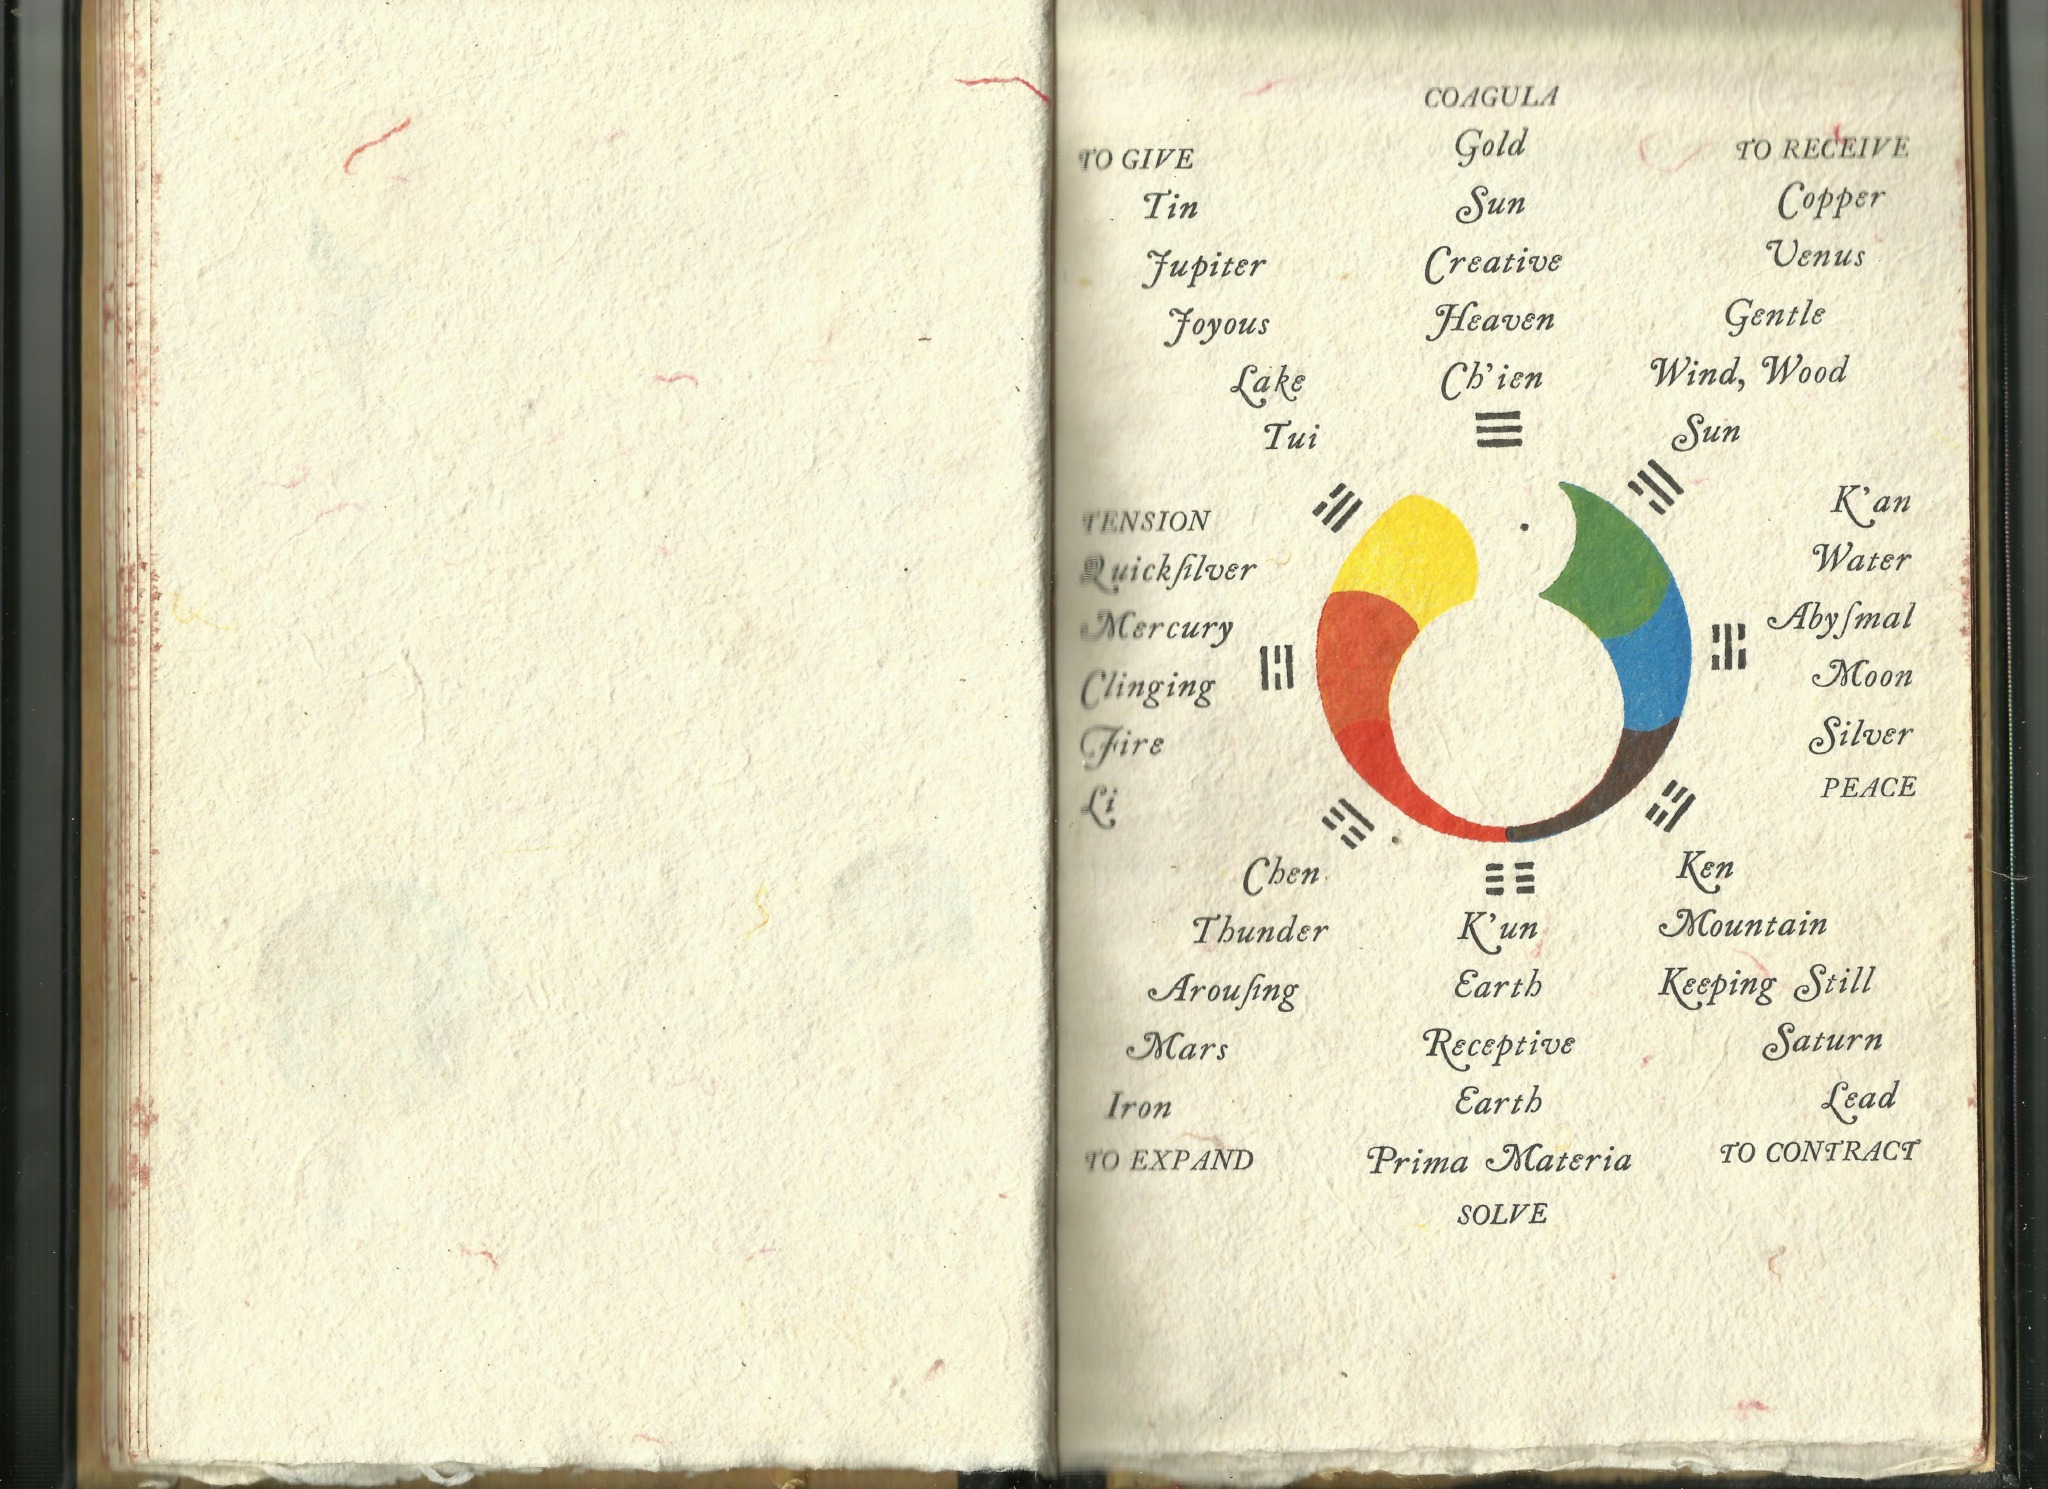 COAGULA
Gold
Sun
Creative
Heaven
Ch'ien
TO GIVE
Tin
Jupiter
Joyous
Lake
Tui
TO RECEIVE
Copper
Venus
Gentle
Wind, Wood
Sun
TENSION
Quickſilver
Mercury
Clinging
Fire
Li
K'an
Water
Abyſmal
Moon
Silver
PEACE
Chen
Thunder
Arouſing
Mars
Iron
TO EXPAND
K'un
Earth
Receptive
Earth
Prima Materia
SOLVE
Ken
Mountain
Keeping Still
Saturn
Lead
TO CONTRACT